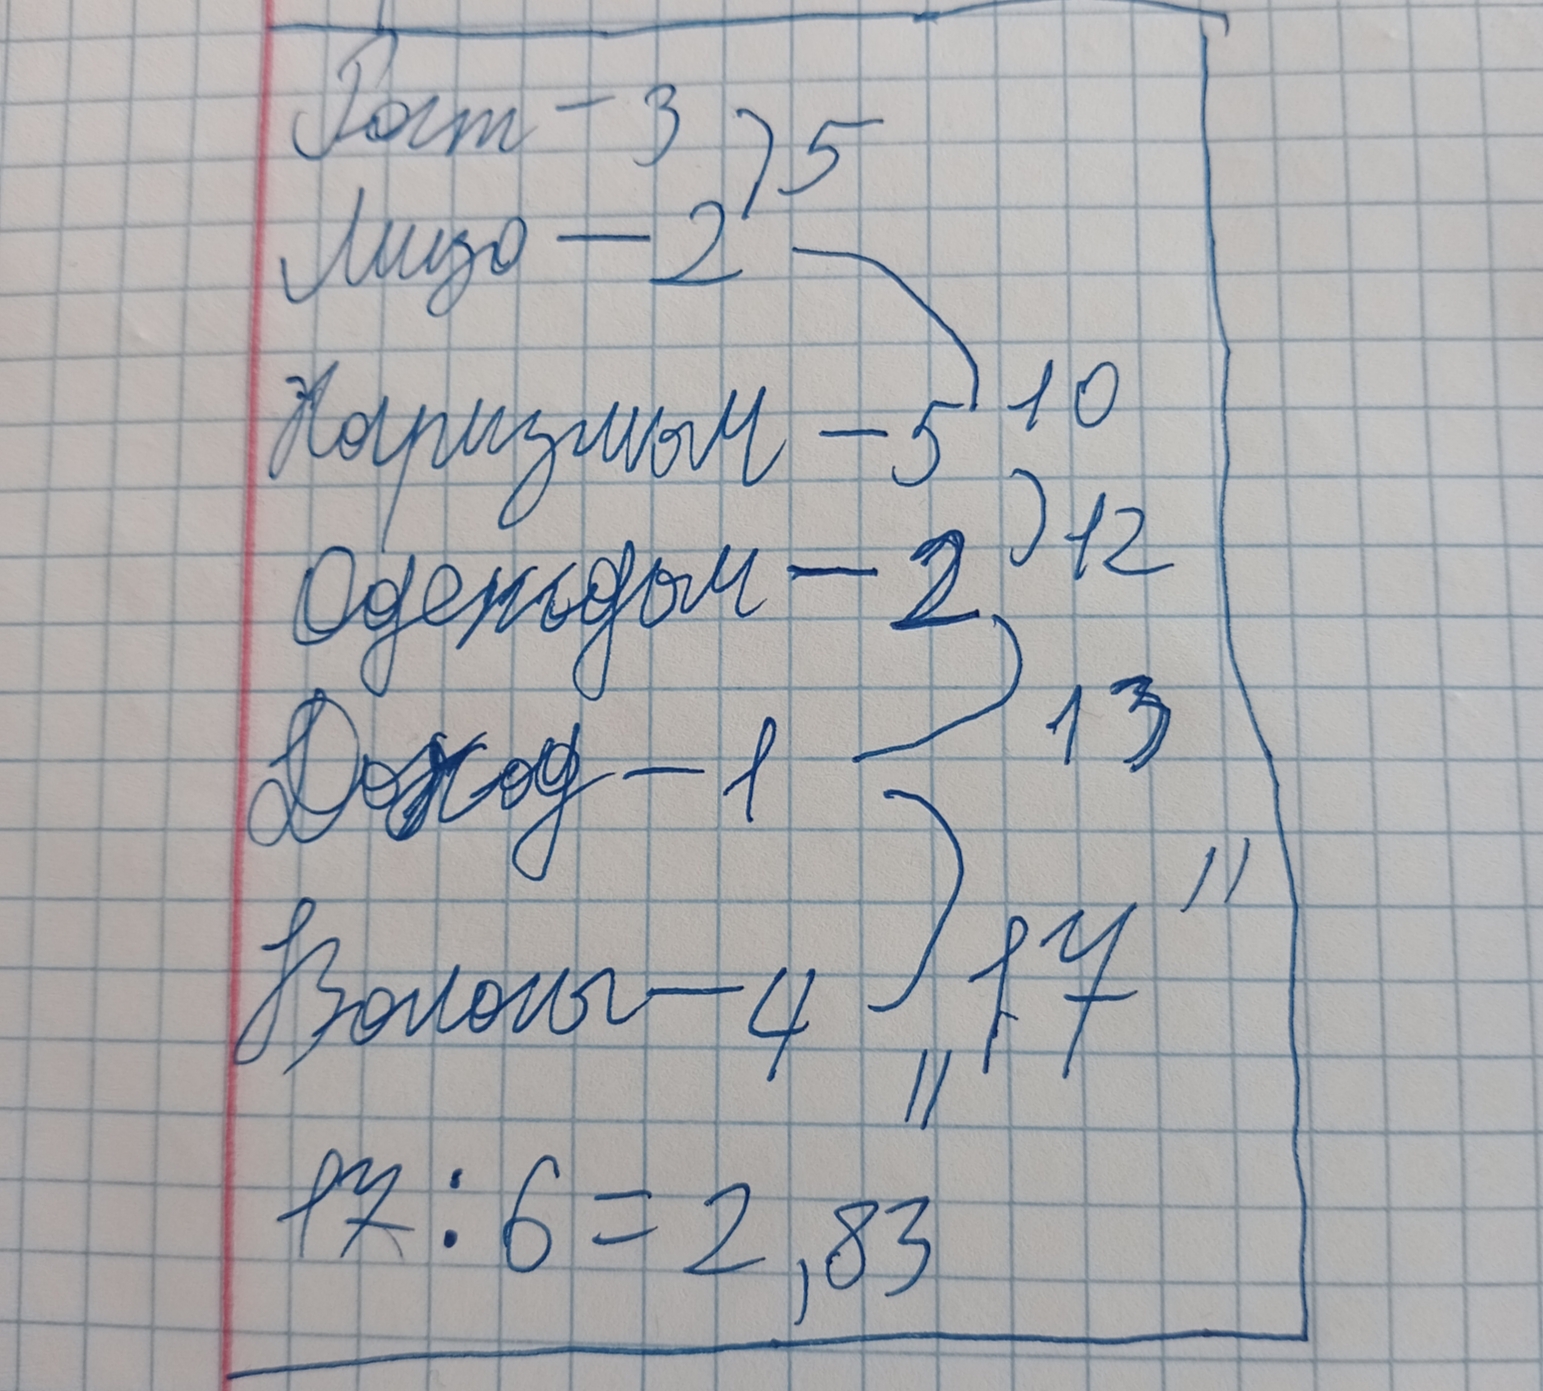 Рост - 3 ) 5
Лицо - 2
Харизмы - 5 10
Одежды - 2 ) 12
Доход - 1 13
Волосы - 4 "17"
17 : 6 = 2,83